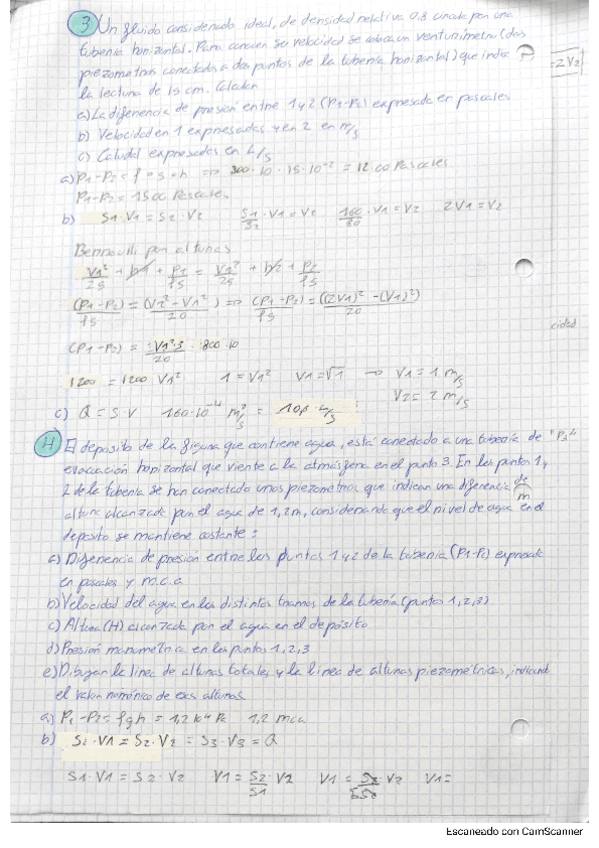 3 Un fluido considerado ideal, de densidad relativa 0.8 circula por una
tubería horizontal. Para conocer su velocidad se coloca un venturímetro (dos
piezometros conectados a dos puntos de la tubería horizontal) que indica
la lectura de 15 cm. Calcular
a) La diferencia de presión entre 1 y 2 (P1-P2) expresada en pascales
b) Velocidad en 1 expresadas y en 2 en m/s
c) Caudal expresados en L/s
a) P1-P2 = ρ · g · h => 800 · 10 · 15 · 10⁻² = 1200 Pascales
P1-P2 = 1500 Pascales
b) S1 · V1 = S2 · V2 S1/S2 · V1 = V2 160/80 · V1 = V2 2V1 = V2
Bernoulli por alturas
V1²/2g + h1 + P1/ρg = V2²/2g + h2 + P2/ρg
(P1-P2)/ρg = (V2² - V1²)/20 => (P1-P2)/ρg = ((2V1)² - (V1)²)/20
(P1-P2) = V1² · 3/20 · 800 · 10
1200 = 1200 V1² 1 = V1² V1 = √1 → V1 = 1 m/s
V2 = 2 m/s
c) Q = S · V 160 · 10⁻⁴ m³/s =
4 El deposito de la figura que contiene agua, está conectado a una tubería de
evacuación horizontal que vierte a la atmósfera en el punto 3. En los puntos 1 y
2 de la tubería se han conectado unos piezometros que indican una diferencia de
altura alcanzada por el agua de 1,2m, considerando que el nivel de agua en el
deposito se mantiene costante:
a) Diferencia de presión entre los puntos 1 y 2 de la tubería (P1-P2) expresada
en pascales y m.c.a
b) Velocidad del agua en los distintos tramos de la tubería (puntos 1, 2, 3)
c) Altura (H) alcanzada por el agua en el depósito
d) Presión manometrica en los puntos 1, 2, 3
e) Dibujar la linea de alturas totales y la linea de alturas piezométricas, indicand
el valor numérico de esas alturas.
a) P1 - P2 = ρgh = 1,2 10⁴ Pa 1,2 mca
b) S1 · V1 = S2 · V2 = S3 · V3 = Q
S1 · V1 = S2 · V2 V1 = S2/S1 · V2 V1 = · V2 V1 =
Escaneado con CamScanner